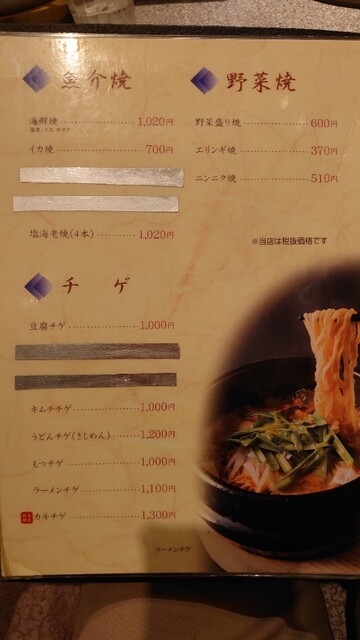 魚介焼
海鮮焼 1,020円
イカ焼 700円
塩海老焼(4本) 1,020円
チゲ
豆腐チゲ 1,000円
キムチチゲ 1,000円
うどんチゲ(きしめん) 1,200円
もつチゲ 1,000円
ラーメンチゲ 1,100円
カキチゲ 1,300円
野菜焼
野菜盛り焼 600円
エリンギ焼 370円
ニンニク焼 510円
※当店は税抜価格です
ラーメンチゲ